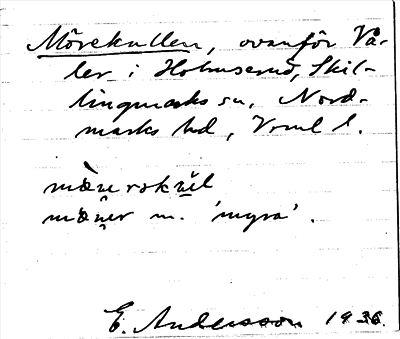 Mörekullen, ovanför Vå-
ler i Holmserud, Skil-
lingmarks sn, Nord-
marks hd, Vrml l.
mære rok
mæner m. 'myra'.
E. Andersson 1936.